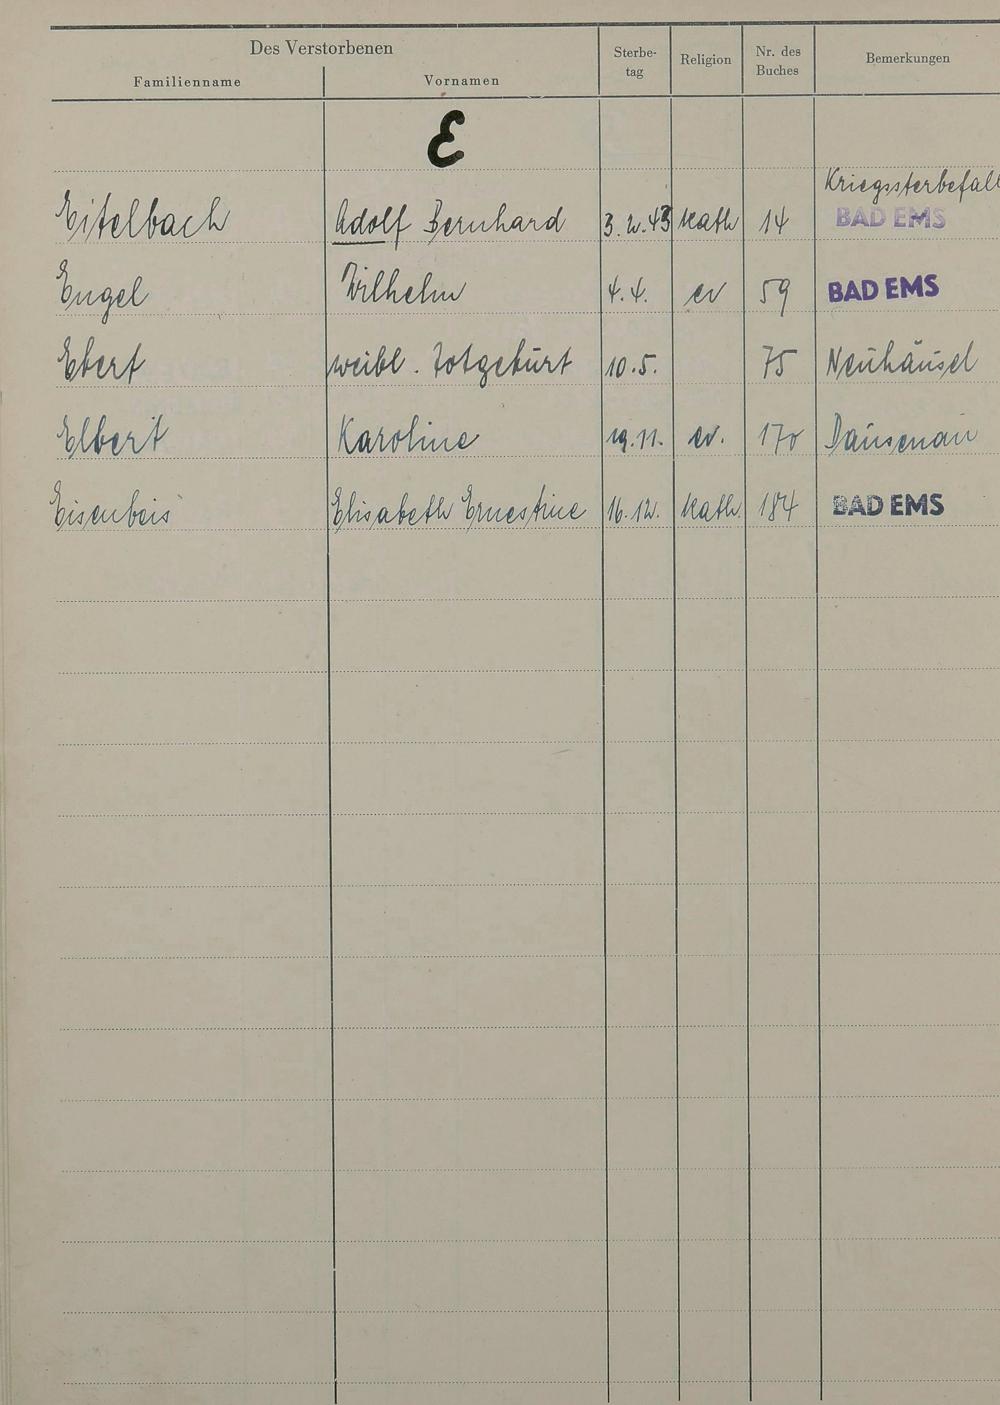 Des Verstorbenen
Familienname Vornamen Sterbe-tag Religion Nr. des Buches Bemerkungen
E
Kriegssterbefall
Eitelbach Adolf Bernhard 3.2.43 Kath 14 BAD EMS
Engel Wilhelm 4.4. ev 59 BAD EMS
Ebert weibl. Totgeburt 10.5. 75 Neuhäusel
Elbert Karoline 19.11. ev. 170 Dausenau
Eisenbeis Elisabeth Ernestine 16.12. Kath. 184 BAD EMS